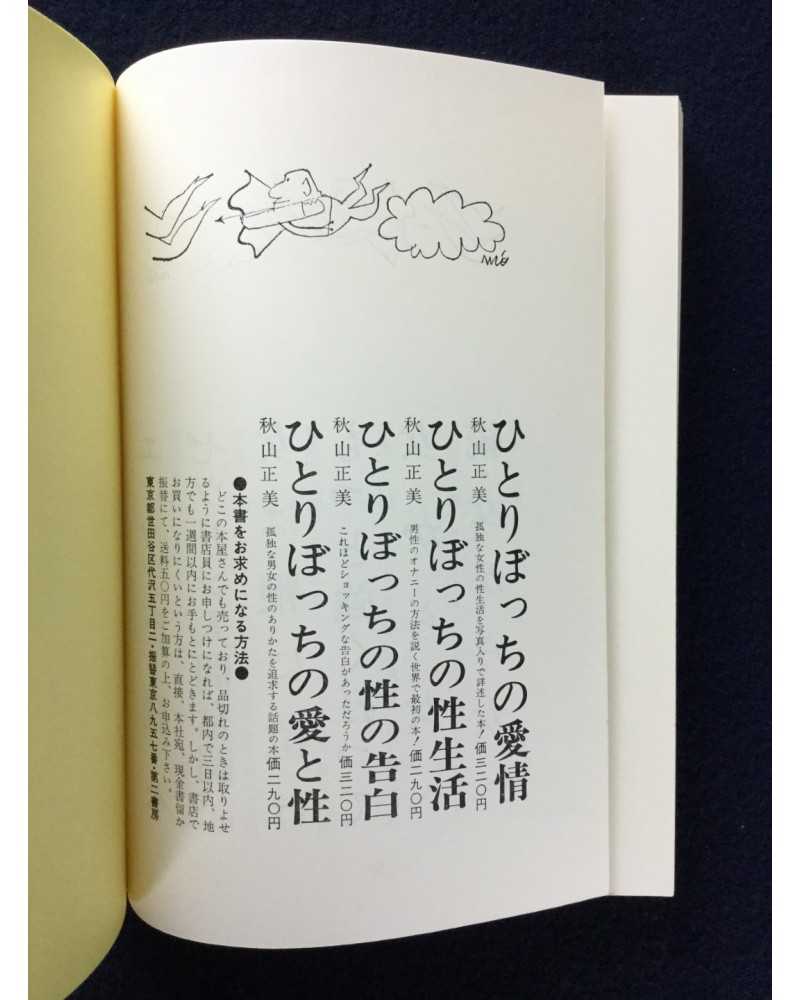 ひとりぼっちの愛情
秋山正美　孤独な女性の性生活を写真入りで詳述した本！価三二〇円
ひとりぼっちの性生活
秋山正美　男性のオナニーの方法を説く世界で最初の本！価二九〇円
ひとりぼっちの性の告白
秋山正美　これほどショッキングな告白があっただろうか　価三二〇円
ひとりぼっちの愛と性
秋山正美　孤独な男女の性のありかたを追求する話題の本　価二九〇円
●本書をお求めになる方法●
どこの本屋さんでも売っており、品切れのときは取りよせ
るように書店員にお申しつけになれば、都内で三日以内、地
方でも一週間以内にお手もとにとどきます。しかし、書店で
お買いになりにくいという方は、直接、本社宛、現金書留か
振替にて、送料五〇円をご加算の上、お申込み下さい。
東京都世田谷区代沢五丁目二・振替東京八九五七番・第二書房